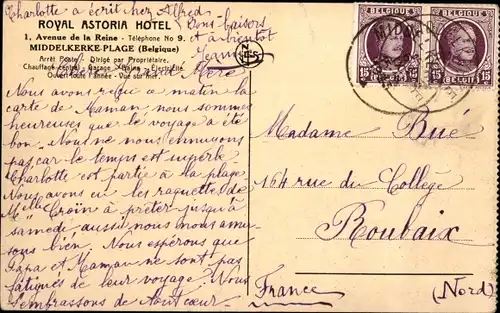 Charlotte a écrit chez Alfred
ROYAL ASTORIA HOTEL
Bons baisers
et à bientôt
Jeanne
1, Avenue de la Reine - Téléphone No 9.
MIDDELKERKE-PLAGE (Belgique)
Arrêt Poste - Dirigé par Propriétaire.
Chauffage central - Garage - Bains - Electricité
Ouvert toute l'année - Vue sur mer.
Mère
Nous avons reçu ce matin la
carte de Maman nous sommes
heureuses que le voyage a été
bon. Nous ne nous ennuyons
pas car le temps est superbe
Charlotte est partie à la plage
Nous avons eu les raquettes de
Melle Croïn à prêter jusqu'à
samedi aussi nous nous amu-
sons bien. Nous espérons que
Papa et Maman ne sont pas
fatigués de leur voyage. Nous
t'embrassons de tout cœur.
BELGIQUE BELGIQUE
15 15 15 15
BELGIË BELGIË
Madame Bué
164 rue du Collège
Roubaix
France (Nord)